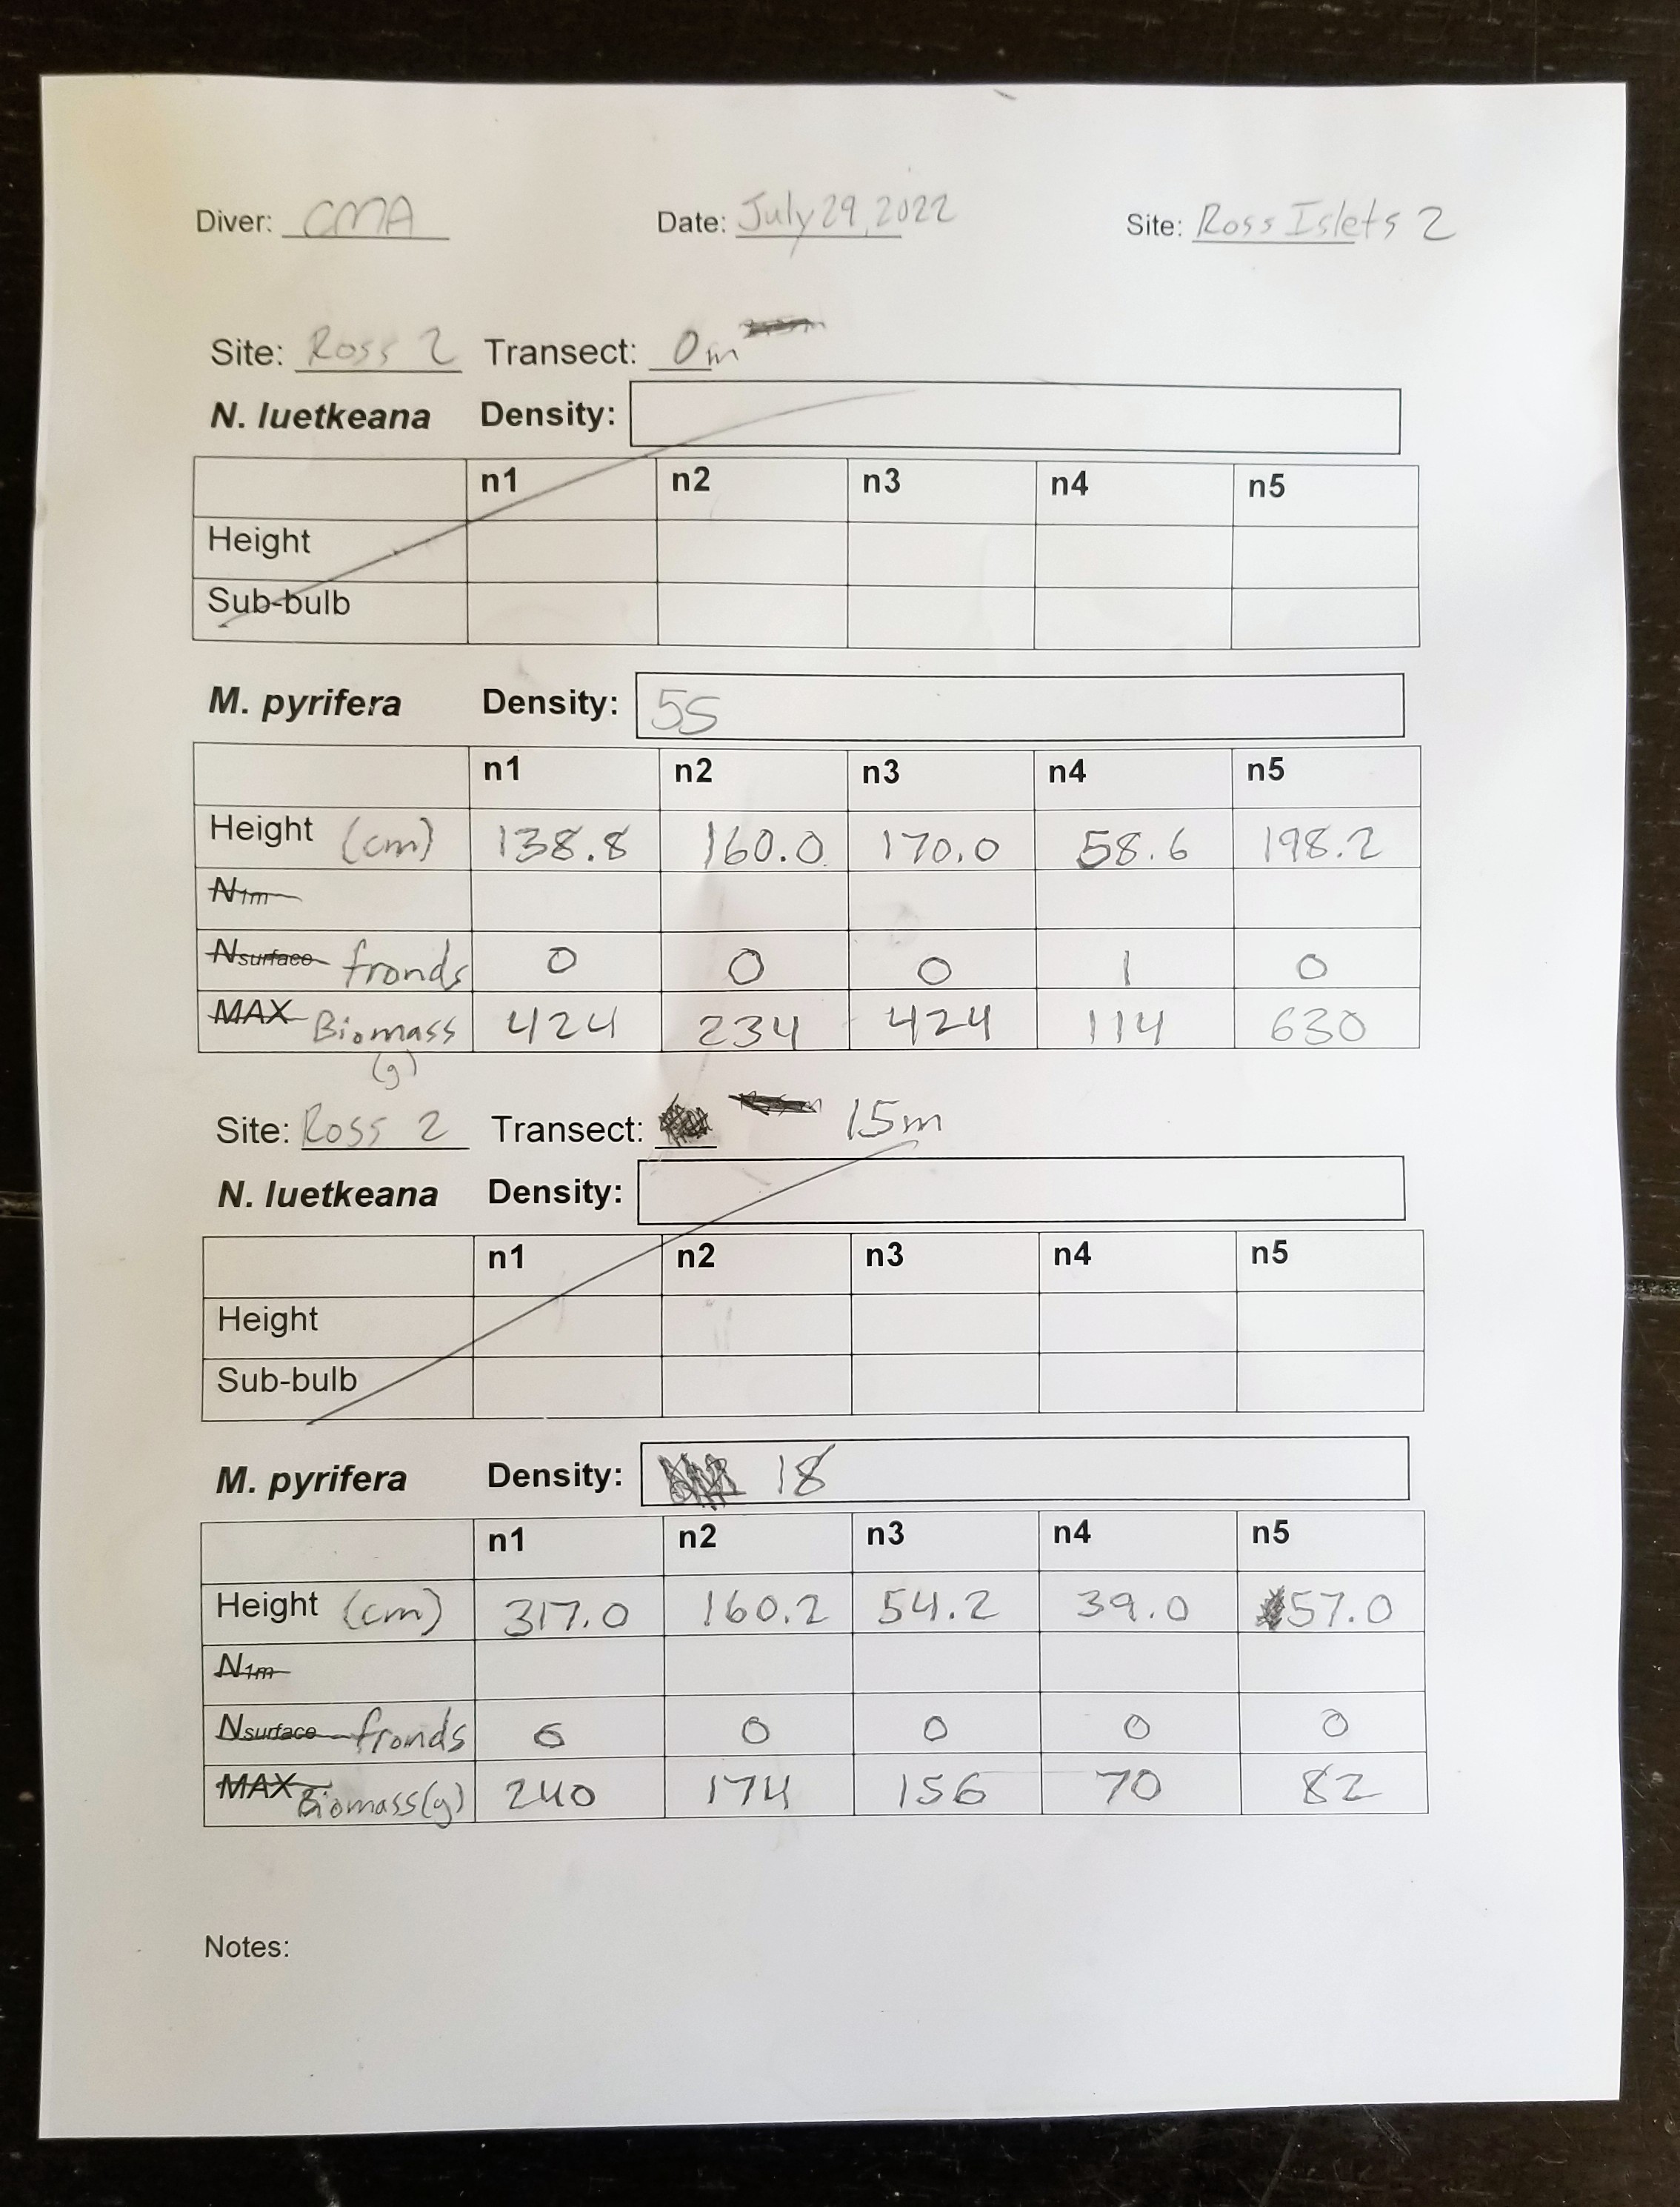 Diver: CMA Date: July 29, 2022 Site: Ross Islets 2
Site: Ross 2 Transect: 0m
N. luetkeana Density:
n1 n2 n3 n4 n5
Height
Sub-bulb
M. pyrifera Density: 55
n1 n2 n3 n4 n5
Height (cm) 138.8 160.0 170.0 58.6 198.2
N1m
Nsurface fronds 0 0 0 1 0
MAX Biomass 424 234 424 114 630
(g)
Site: Ross 2 Transect: 15m
N. luetkeana Density:
n1 n2 n3 n4 n5
Height
Sub-bulb
M. pyrifera Density: 18
n1 n2 n3 n4 n5
Height (cm) 317.0 160.2 54.2 39.0 57.0
N1m
Nsurface fronds 6 0 0 0 0
MAX Biomass(g) 240 174 156 70 82
Notes: